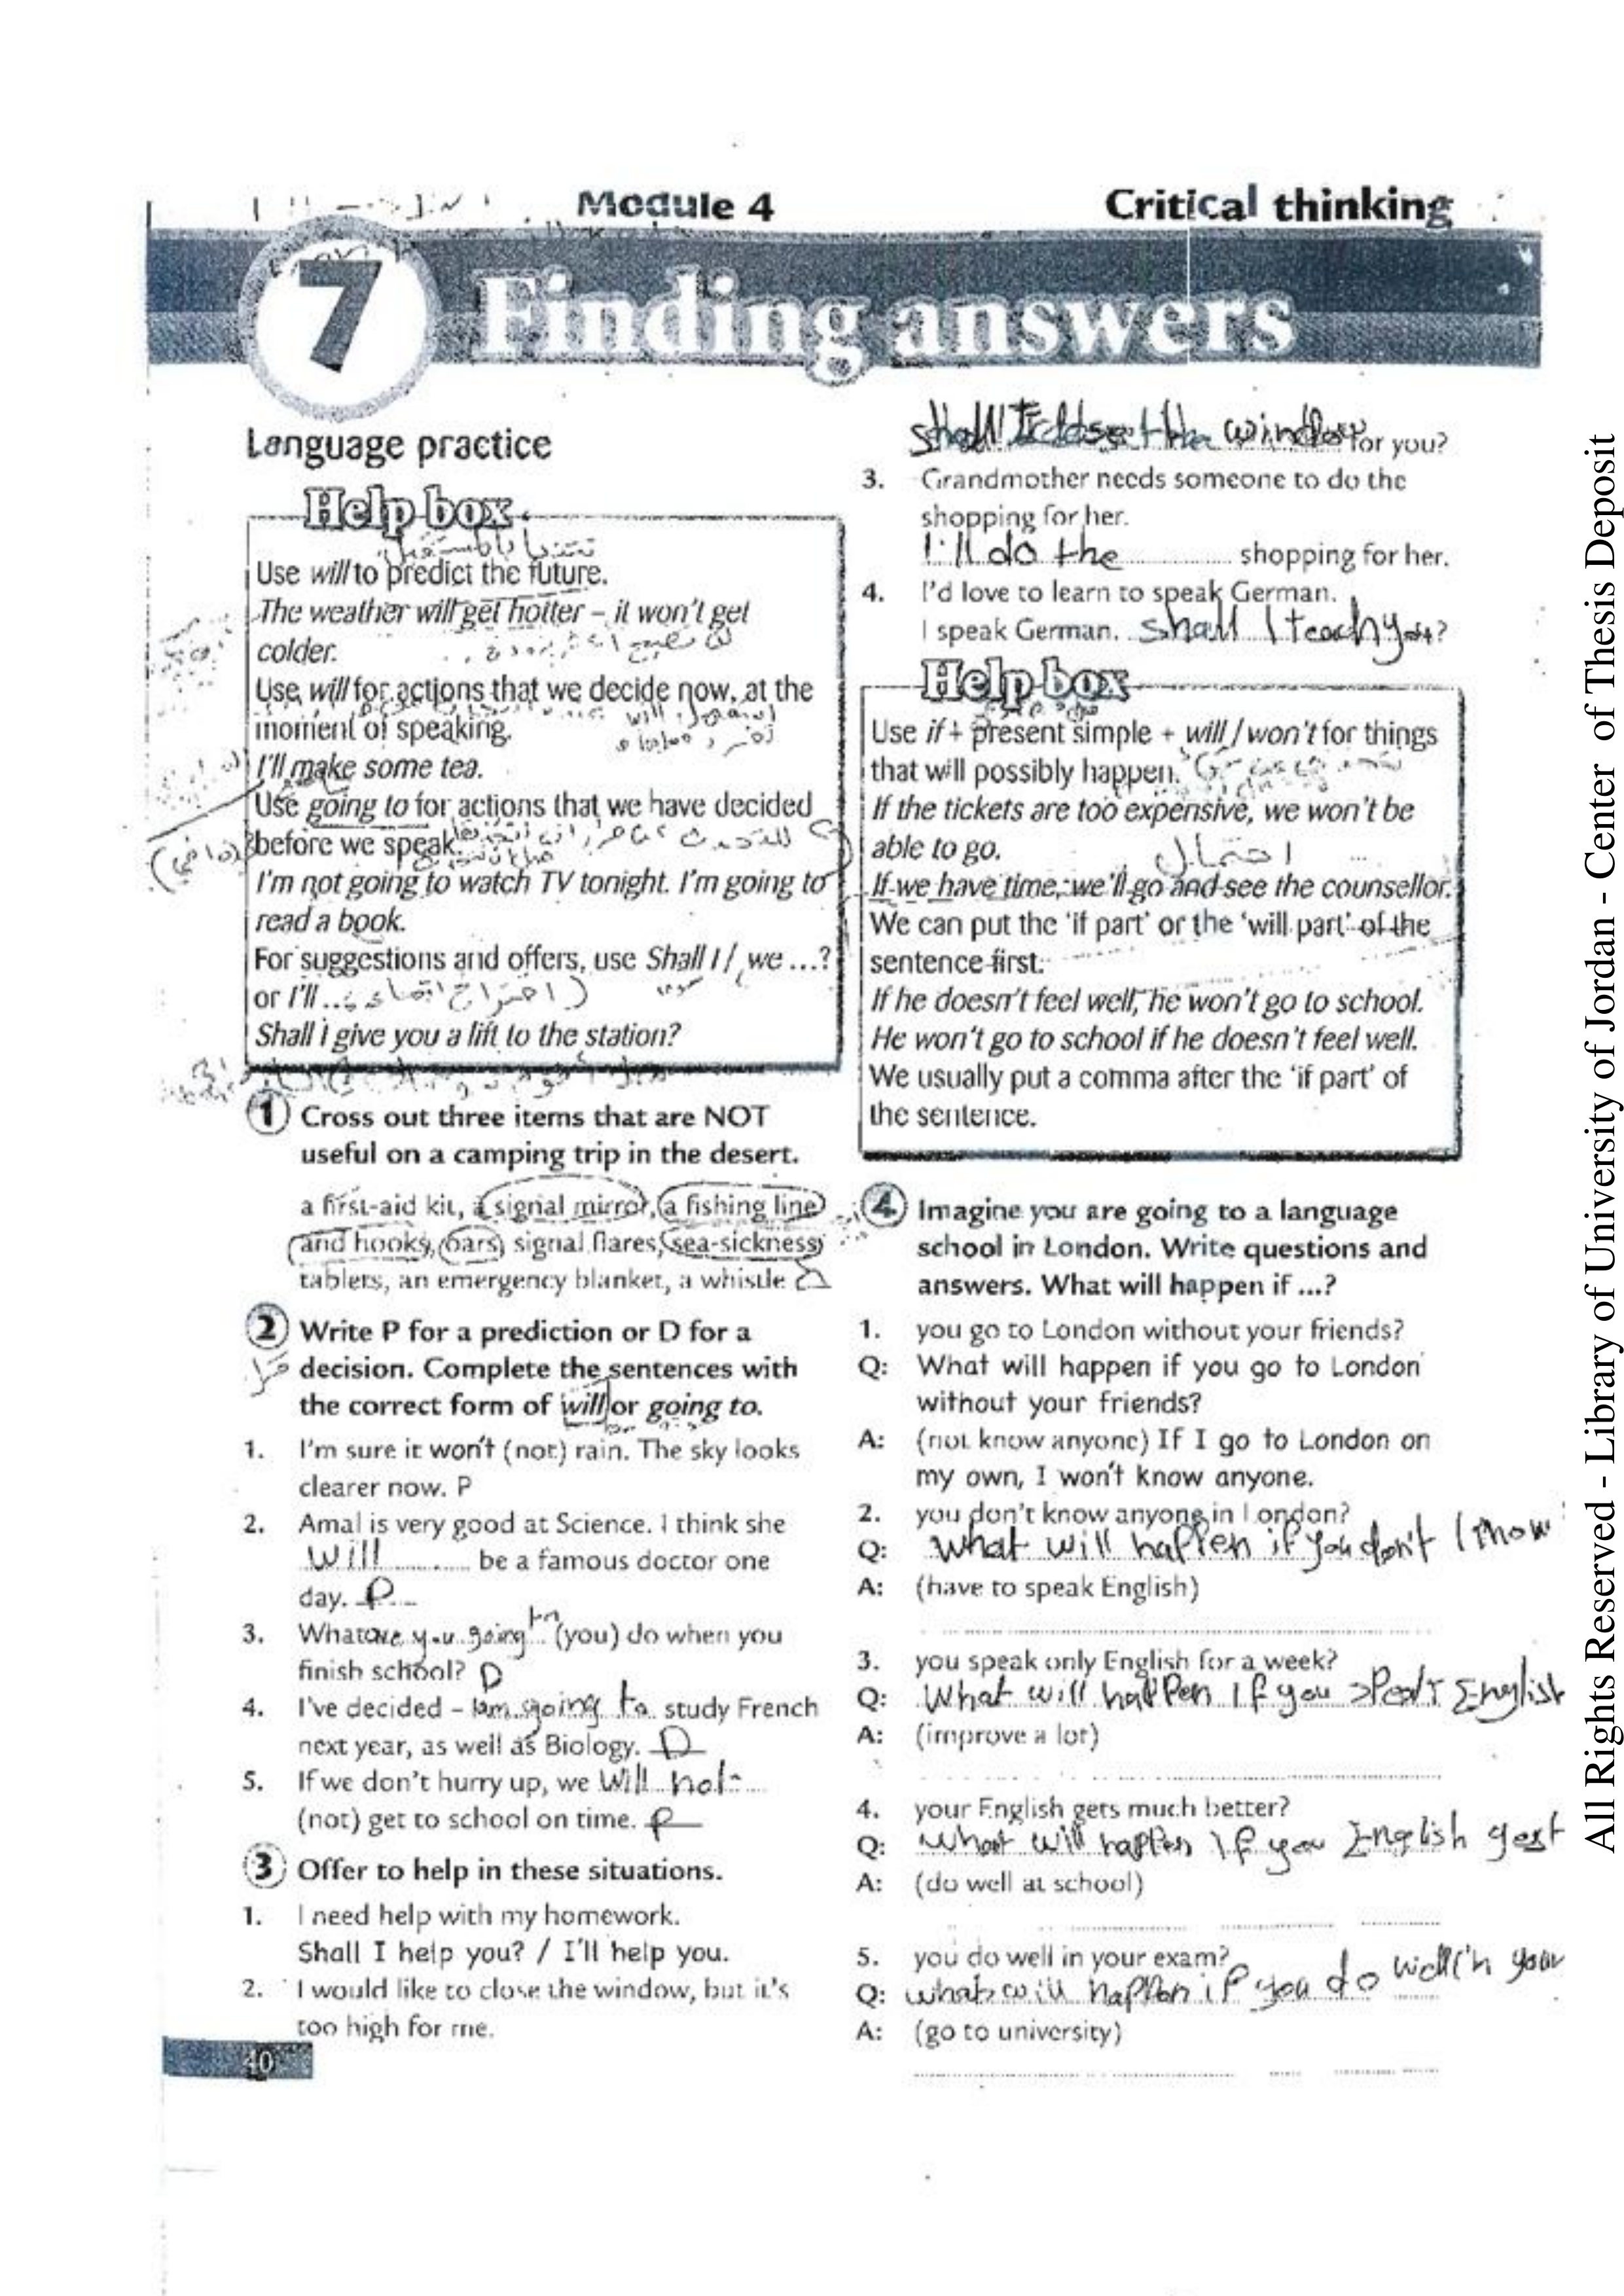 Module 4
Critical thinking
7 Finding answers
Language practice
Help box
Use will to predict the future.
The weather will get hotter – it won't get
colder.
Use will for actions that we decide now, at the
moment of speaking.
I'll make some tea.
Use going to for actions that we have decided
before we speak.
I'm not going to watch TV tonight. I'm going to
read a book.
For suggestions and offers, use Shall I / we ...?
or I'll ...
Shall I give you a lift to the station?
1 Cross out three items that are NOT
useful on a camping trip in the desert.
a first-aid kit, a signal mirror, a fishing line
and hooks, oars, signal flares, sea-sickness
tablets, an emergency blanket, a whistle
2 Write P for a prediction or D for a
decision. Complete the sentences with
the correct form of will or going to.
1. I'm sure it won't (not) rain. The sky looks
clearer now. P
2. Amal is very good at Science. I think she
will be a famous doctor one
day. P
3. What are you going to (you) do when you
finish school? D
4. I've decided – Iam going to study French
next year, as well as Biology. D
5. If we don't hurry up, we will not
(not) get to school on time. P
3 Offer to help in these situations.
1. I need help with my homework.
Shall I help you? / I'll help you.
2. I would like to close the window, but it's
too high for me.
40
shall I close the window for you?
3. Grandmother needs someone to do the
shopping for her.
I'll do the shopping for her.
4. I'd love to learn to speak German.
I speak German. shall I teach you?
Help box
Use if + present simple + will / won't for things
that will possibly happen.
If the tickets are too expensive, we won't be
able to go.
احتمال
If we have time, we'll go and see the counsellor.
We can put the 'if part' or the 'will part' of the
sentence first.
If he doesn't feel well, he won't go to school.
He won't go to school if he doesn't feel well.
We usually put a comma after the 'if part' of
the sentence.
4 Imagine you are going to a language
school in London. Write questions and
answers. What will happen if ...?
1. you go to London without your friends?
Q: What will happen if you go to London
without your friends?
A: (not know anyone) If I go to London on
my own, I won't know anyone.
2. you don't know anyone in London?
Q: What will happen if you don't know
A: (have to speak English)
3. you speak only English for a week?
Q: What will happen if you speak English
A: (improve a lot)
4. your English gets much better?
Q: What will happen if you English gest
A: (do well at school)
5. you do well in your exam?
Q: what will happen if you do well in your
A: (go to university)
All Rights Reserved - Library of University of Jordan - Center of Thesis Deposit